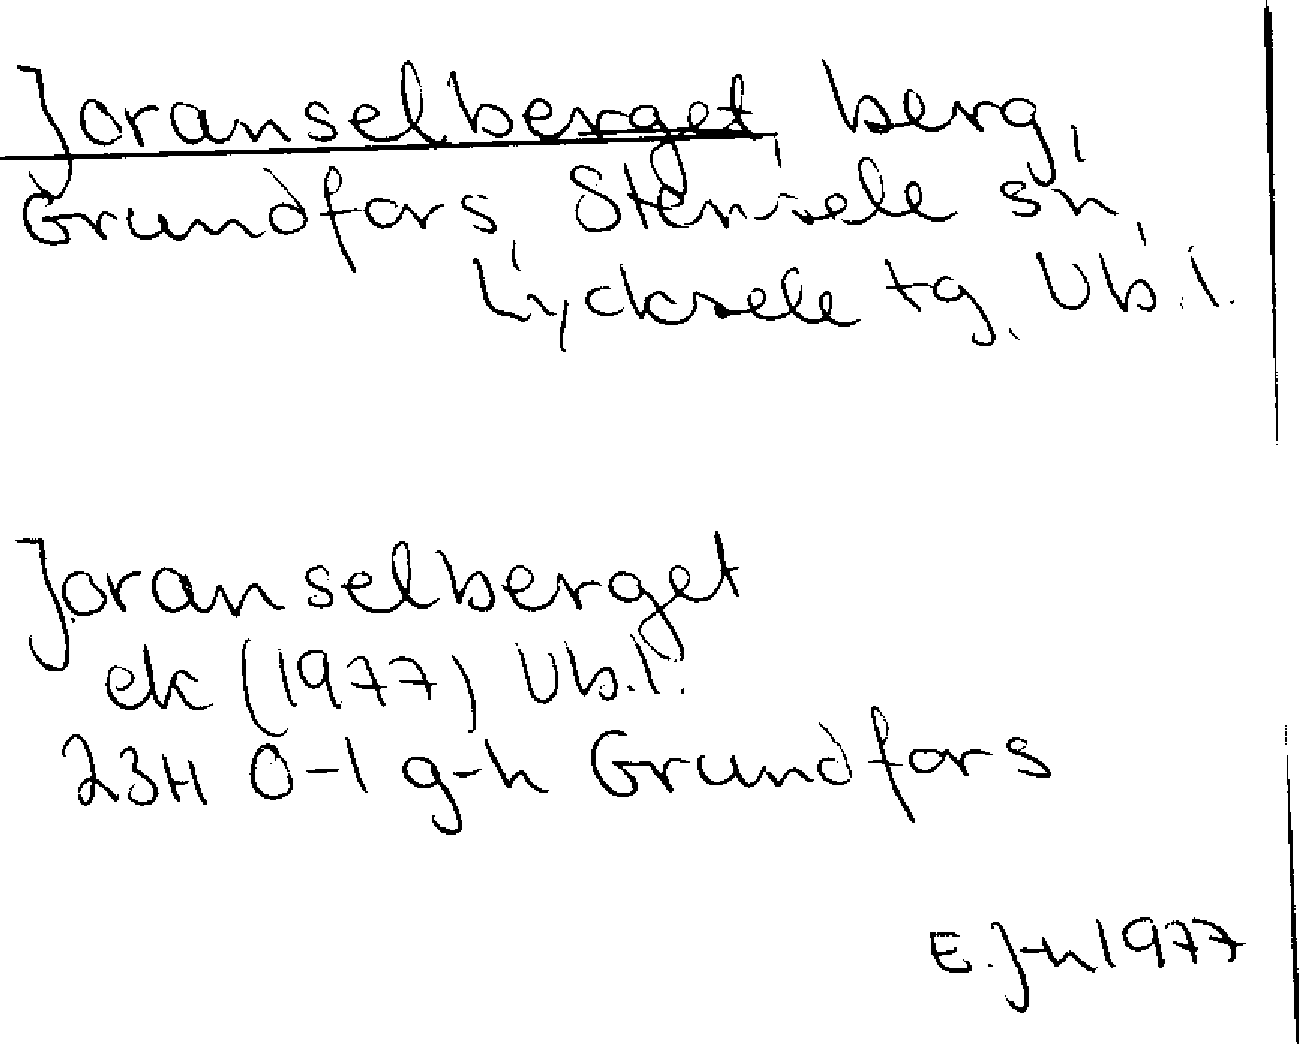 Joranselberget, berg,
Grundfors, Stensele sn,
Lycksele tg, Vb.l.
Joranselberget
ek (1977) Vb.l.
23H 0-1 g-h Grundfors
E. J-n 1977